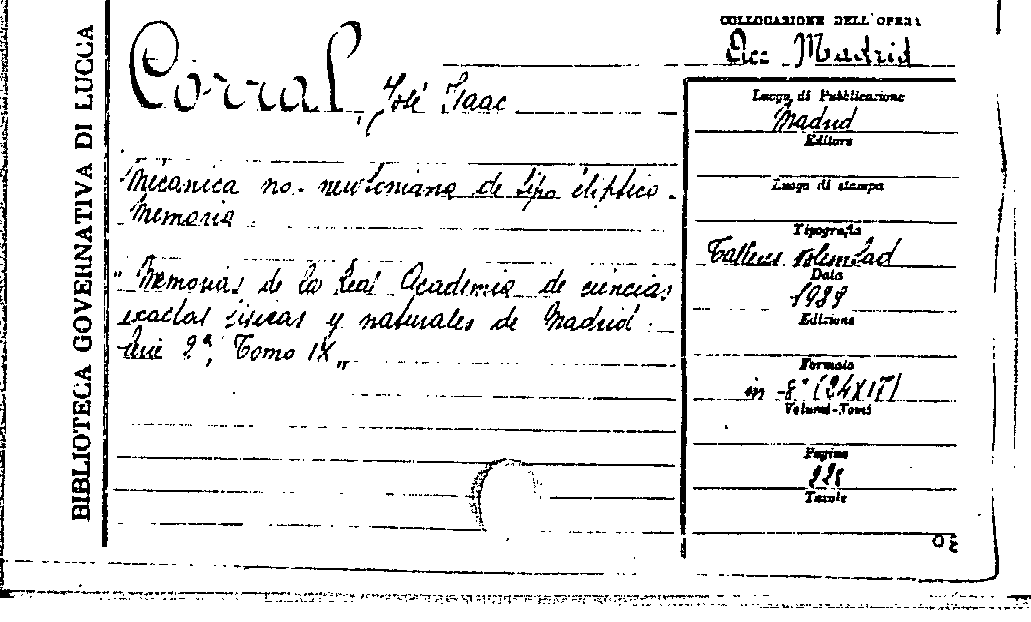 BIBLIOTECA GOVERNATIVA DI LUCCA
COLLOCAZIONE DELL'OPERA
Acc Madrid
Corral, José Isaac
Mecanica no. newtoniana de tipo eliptico.
Memoria.
"Memorias de la Real Academia de ciencias
exactas fisicas y naturales de Madrid.
Serie 2ª, Tomo IX"
Luogo di Pubblicazione
Madrid
Editore
Luogo di stampa
Tipografia
Talleres
Data
Edizione
Formato
in -8° (24X17)
Volumi-Tomi
Pagine
Tavole